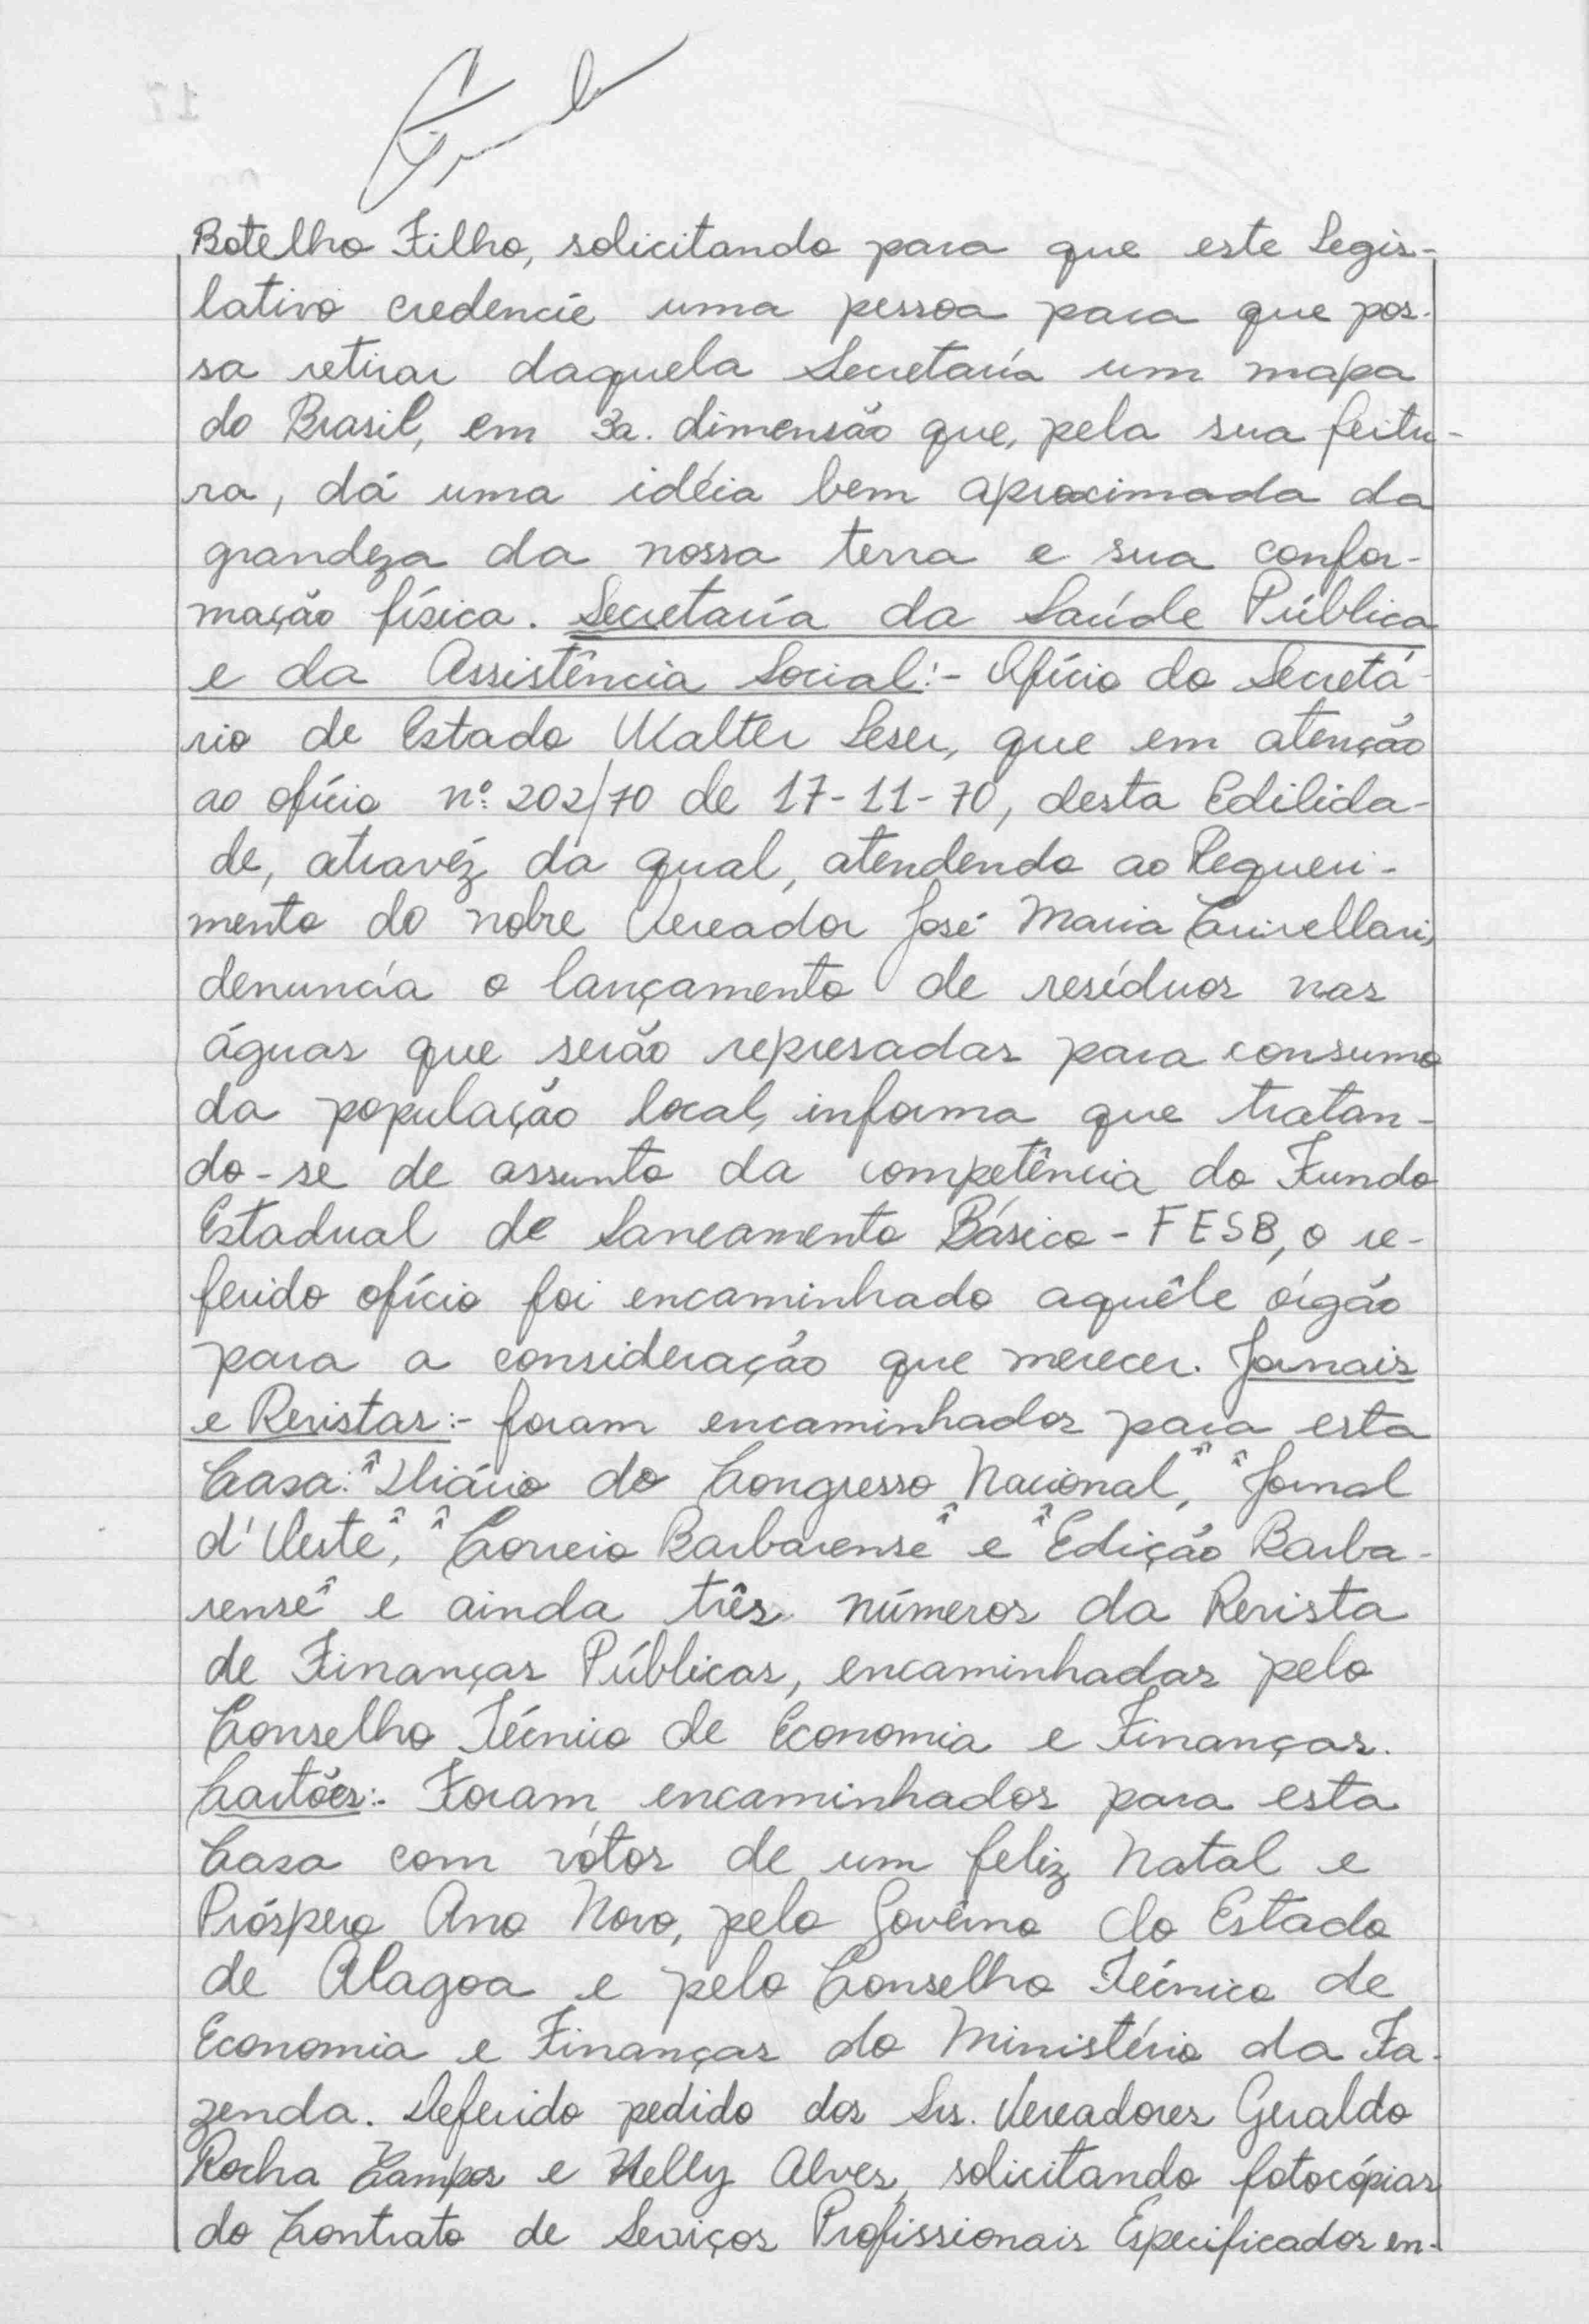 Botelho Filho, solicitando para que este Legis-
lativo credencie uma pessoa para que pos-
sa retirar daquela Secretaría um mapa
do Brasil, em 3a. dimensão que, pela sua feitu-
ra, dá uma idéia bem aproximada da
grandeza da nossa terra e sua confor-
mação física. Secretaría da Saúde Pública
e da Assistência Social:- Ofício do Secretá-
rio de Estado Walter Leser, que em atenção
ao ofício nº 202/70 de 17-11-70, desta Edilida-
de, atravéz da qual, atendendo ao Requeri-
mento do nobre Vereador José Maria
denuncía o lançamento de resíduos nas
águas que serão represadas para consumo
da população local, informa que tratan-
do-se de assunto da competência do Fundo
Estadual de Saneamento Básico - FESB, o re-
ferido ofício foi encaminhado aquêle órgão
para a consideração que merecer. Jornais
e Revistas:- foram encaminhados para esta
Casa: "Diário do Congresso Nacional", "Jornal
d'Oeste", "Correio Barbarense" e "Edição Barba-
rense" e ainda três números da Revista
de Finanças Públicas, encaminhadas pelo
Conselho Técnico de Economia e Finanças.
Cartões:- Foram encaminhados para esta
Casa com vótos de um feliz Natal e
Próspero Ano Novo, pelo Govêrno do Estado
de Alagoa e pelo Conselho Técnico de
Economia e Finanças do Ministério da Fa-
zenda. Deferido pedido dos Srs. Vereadores Geraldo
Rocha Campos e Nelly Alves, solicitando fotocópias
do Contrato de Serviços Profissionais Especificados en-